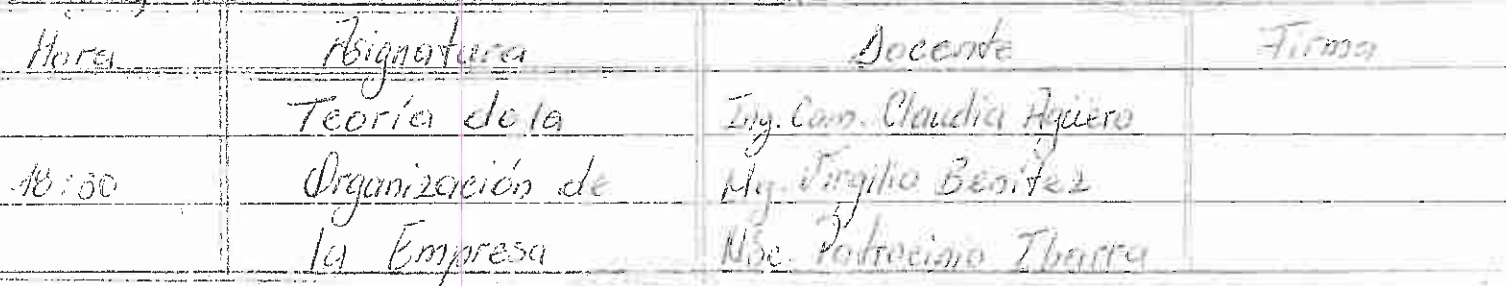 Hora Asignatura Docente Firma
Teoría de la Ing. Com. Claudia Agüero
18:30 Organización de Mg. Virgilio Benítez
la Empresa Msc. Patrocinio Ibarra